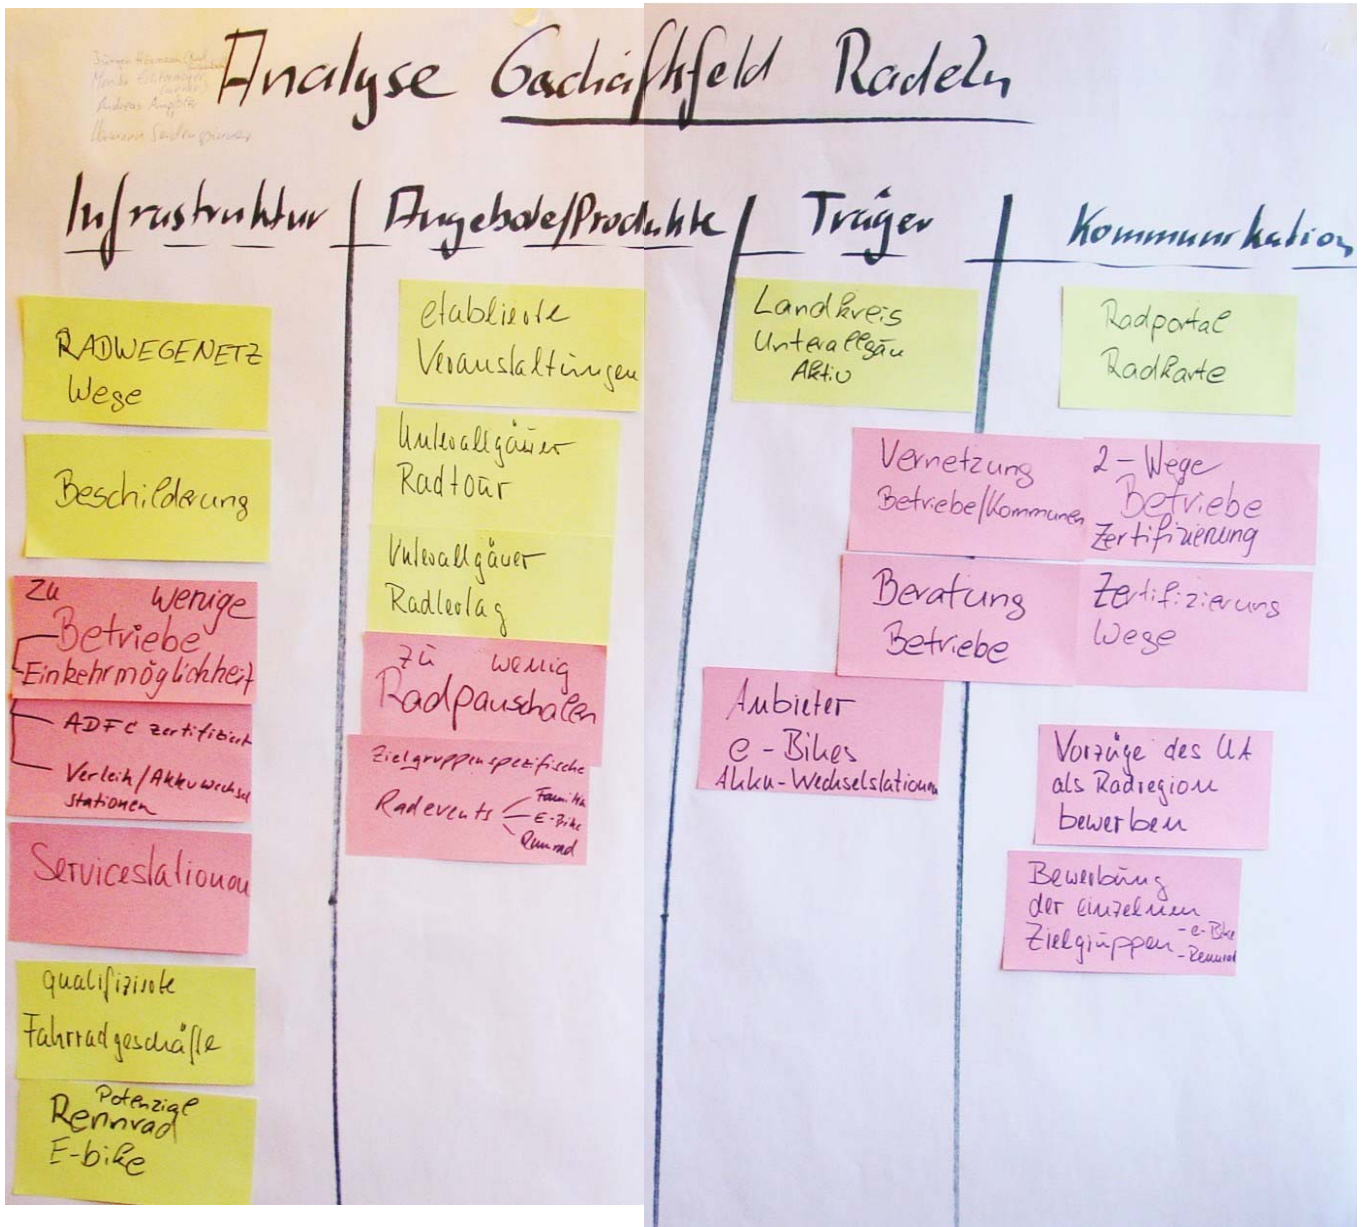 Analyse Geschäftsfeld Radeln
Infrastruktur
RADWEGENETZ
Wege
Beschilderung
Zu wenige
Betriebe
Einkehrmöglichkeit
ADFC zertifiziert
Verleih/Akkuwechsel
stationen
Servicestationen
qualifizierte
Fahrradgeschäfte
Potenzial
Rennrad
E-bike
Angebote/Produkte
etablierte
Veranstaltungen
Unterallgäuer
Radtour
Unterallgäuer
Radlertag
zu wenig
Radpauschalen
Zielgruppenspezifische
Radevents
Familie
E-Bike
Rennrad
Träger
Landkreis
Unterallgäu
Aktiv
Vernetzung
Betriebe/Kommunen
Beratung
Betriebe
Anbieter
e-Bikes
Akku-Wechselstationen
Kommunikation
Radportal
Radkarte
2-Wege
Betriebe
Zertifizierung
Zertifizierung
Wege
Vorzüge des UA
als Radregion
bewerben
Bewerbung
der einzelnen
Zielgruppen - e-Bike
- Rennrad